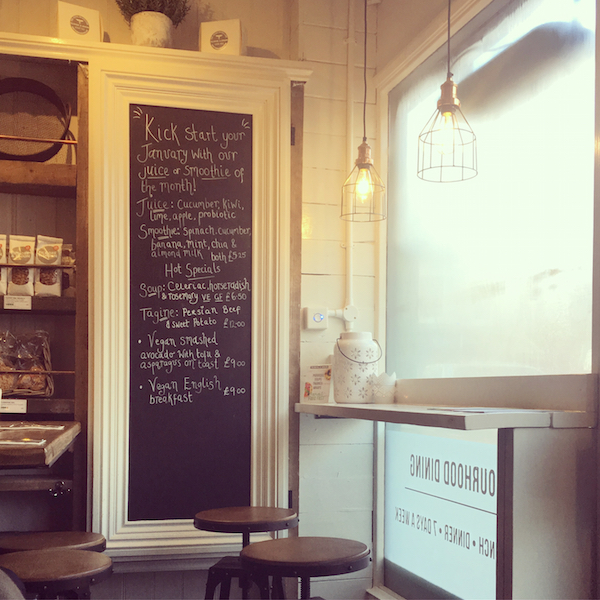 Kick start your
January with our
juice or smoothie of
the month!
Juice: Cucumber, Kiwi,
lime, apple, probiotic
Smoothie: Spinach, cucumber,
banana, mint, chia &
almond milk both £5.25
Hot Specials
Soup: Celeriac, horseradish
& rosemary VE GF £6.50
Tagine: Persian Beef
& Sweet Potato £12.00
• Vegan smashed
avocado with tofu &
asparagus on toast £9.00
• Vegan English
breakfast £9.00
OURHOOD DINING
NCH • DINNER • 7 DAYS A WEEK